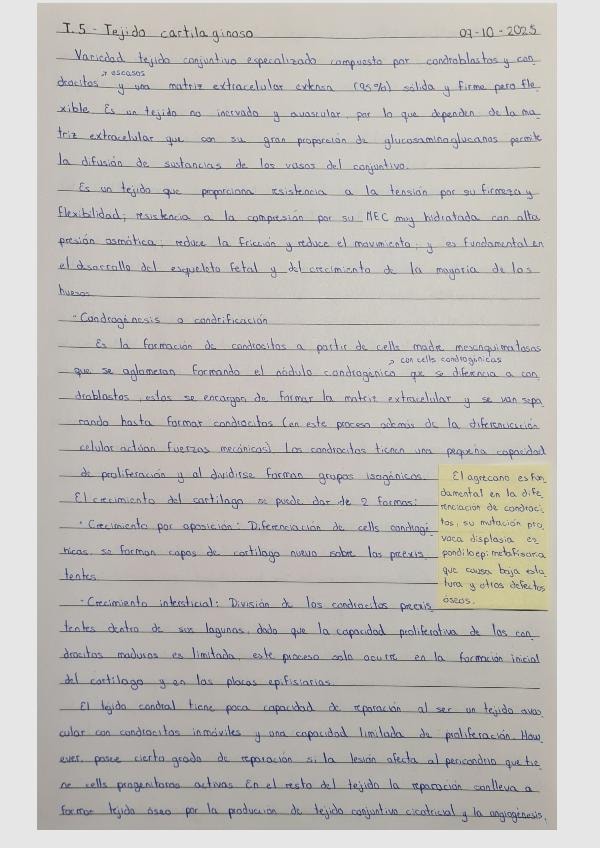 T.5 - Tejido cartilaginoso 07-10-2025
Variedad tejido conjuntivo especalizado compuesto por condroblastos y con_
drocitos y una matriz extracelular extensa (95%) sólida y firme pero fle_
→ escasos
xible. Es un tejido no inervado y avascular, por lo que dependen de la ma_
triz extracelular que con su gran proporción de glucosaminoglucanos permite
la difusión de sustancias de los vasos del conjuntivo.
Es un tejido que proporciona resistencia a la tensión por su firmeza y
flexibilidad; resistencia a la compresión por su MEC muy hidratada con alta
presión osmótica; reduce la fricción y reduce el movimiento; y es fundamental en
el desarrollo del esqueleto fetal y del crecimiento de la mayoría de los
huesos.
· Condrogénesis o condrificación
Es la formación de condrocitos a partir de cells madre mesenquimatosas
→ con cells condrogénicas
que se aglomeran formando el nódulo condrogénico que se diferncia a con_
droblastos, estos se encargan de formar la matriz extracelular y se van sepa_
rando hasta formar condrocitos (en este proceso además de la diferenciación
celular actúan fuerzas mecánicas). Los condrocitos tienen una pequeña capacidad
de proliferación y al dividirse forman grupos isogénicos.
El crecimiento del cartílago se puede dar de 2 formas:
· Crecimiento por aposición: Diferenciación de cells condrogé_
nicas, se forman capas de cartílago nuevo sobre las preexis_
tentes.
· Crecimiento intersticial: División de los condrocitos preexis_
tentes dentro de sus lagunas, dado que la capacidad proliferativa de los con_
drocitos maduros es limitada, este proceso solo ocurre en la formación inicial
del cartílago y en las placas epifisiarias.
El tejido condral tiene poca capacidad de reparación al ser un tejido avas_
cular con condrocitos inmóviles y una capacidad limitada de proliferación. How_
ever, posee cierto grado de reparación si la lesión afecta al pericondrio que tie_
ne cells progenitoras activas. En el resto del tejido la reparación conlleva a
formar tejido óseo por la producción de tejido conjuntivo cicatricial y la angiogénesis.
El agrecano es fun_
damental en la dife_
renciación de condroci_
tos, su mutación pro_
voca displasia es_
pondiloepimetafisaria
que causa baja esta_
tura y otros defectos
óseos.